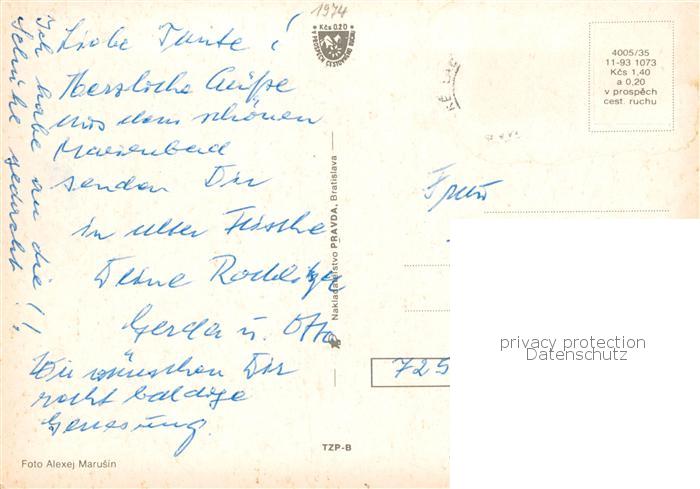 1974
Kčs 0.20
V PROSPĚCH CESTOVNÍHO RUCHU
Liebe Tante!
Herzliche Grüße
aus dem schönen
Marienbad
senden Dir
in alter Frische
Deine
Gerda u. Otto
Wir wünschen Dir
recht baldige
Genesung.
Ich habe an die
Schuhe gedacht!
Foto Alexej Marušin
TZP-B
Nakladateľstvo PRAVDA, Bratislava
4005/35
11-93 1073
Kčs 1,40
a 0,20
v prospěch
cest. ruchu
Frau
725
privacy protection
Datenschutz